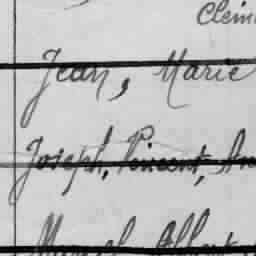 Clém
Jean, Marie
Joseph, Vincent, An
Marcel Albert